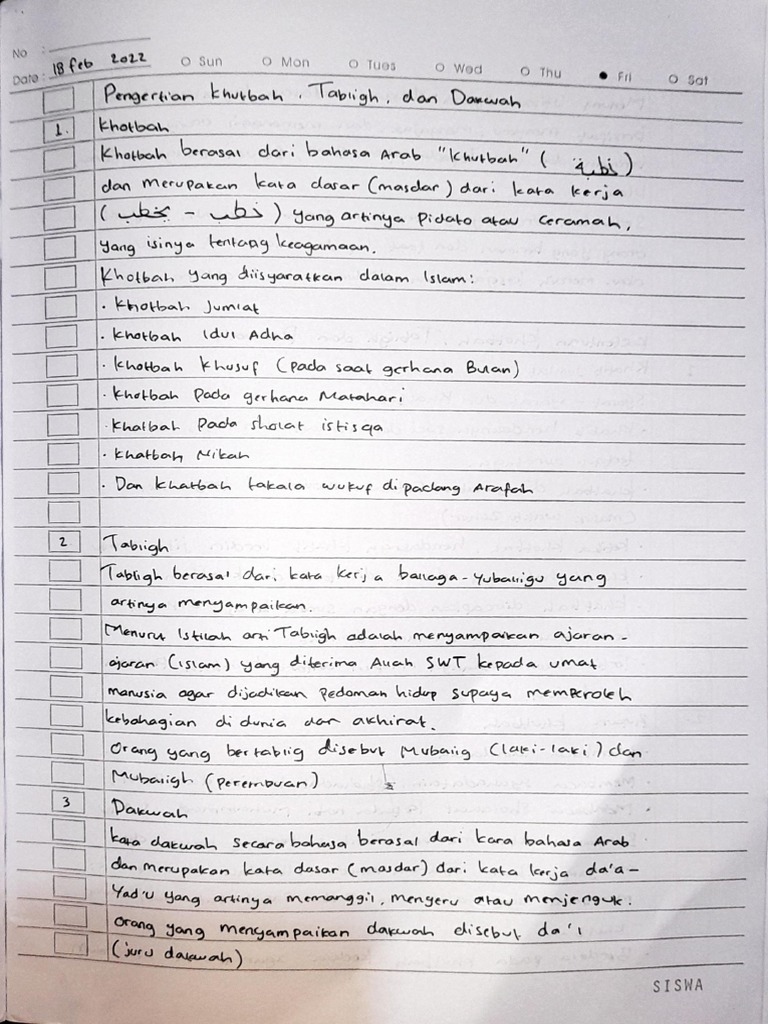 No :
Date : 18 feb 2022 Sun Mon Tues Wed Thu Fri Sat
Pengertian khutbah, Tabligh, dan Dakwah
1. Khotbah
Khotbah berasal dari bahasa Arab "Khutbah" (خطبة)
dan merupakan kata dasar (masdar) dari kata kerja
(خطب - يخطب) yang artinya Pidato atau ceramah,
yang isinya tentang keagamaan.
Khotbah yang diisyaratkan dalam Islam:
. Khotbah Jumlat
. Khotbah Idul Adha
. Khotbah Khusuf (pada saat gerhana Bulan)
. Khotbah Pada gerhana Matahari
. Khatbah Pada sholat istisqa
. Khatbah Nikah
. Dan Khatbah takala wukuf dipadang Arafah
2 Tabligh
Tabligh berasal dari kata kerja ballaga - Yuballigu yang
artinya menyampaikan.
Menurut Istilah arti Tabligh adalah menyampaikan ajaran -
ajaran (islam) yang diterima Allah SWT kepada umat
manusia agar dijadikan pedoman hidup supaya memperoleh
kebahagian di dunia dan akhirat.
Orang yang bertablig disebut Muballig (laki-laki) dan
Muballigh (perempuan)
3 Dakwah
kata dakwah secara bahasa berasal dari kara bahasa Arab
dan merupakan kata dasar (masdar) dari kata kerja da'a -
Yad'u yang artinya memanggil, menyeru atau menjenguk.
orang yang menyampaikan dakwah disebut da'i
(juru dakwah)
SISWA